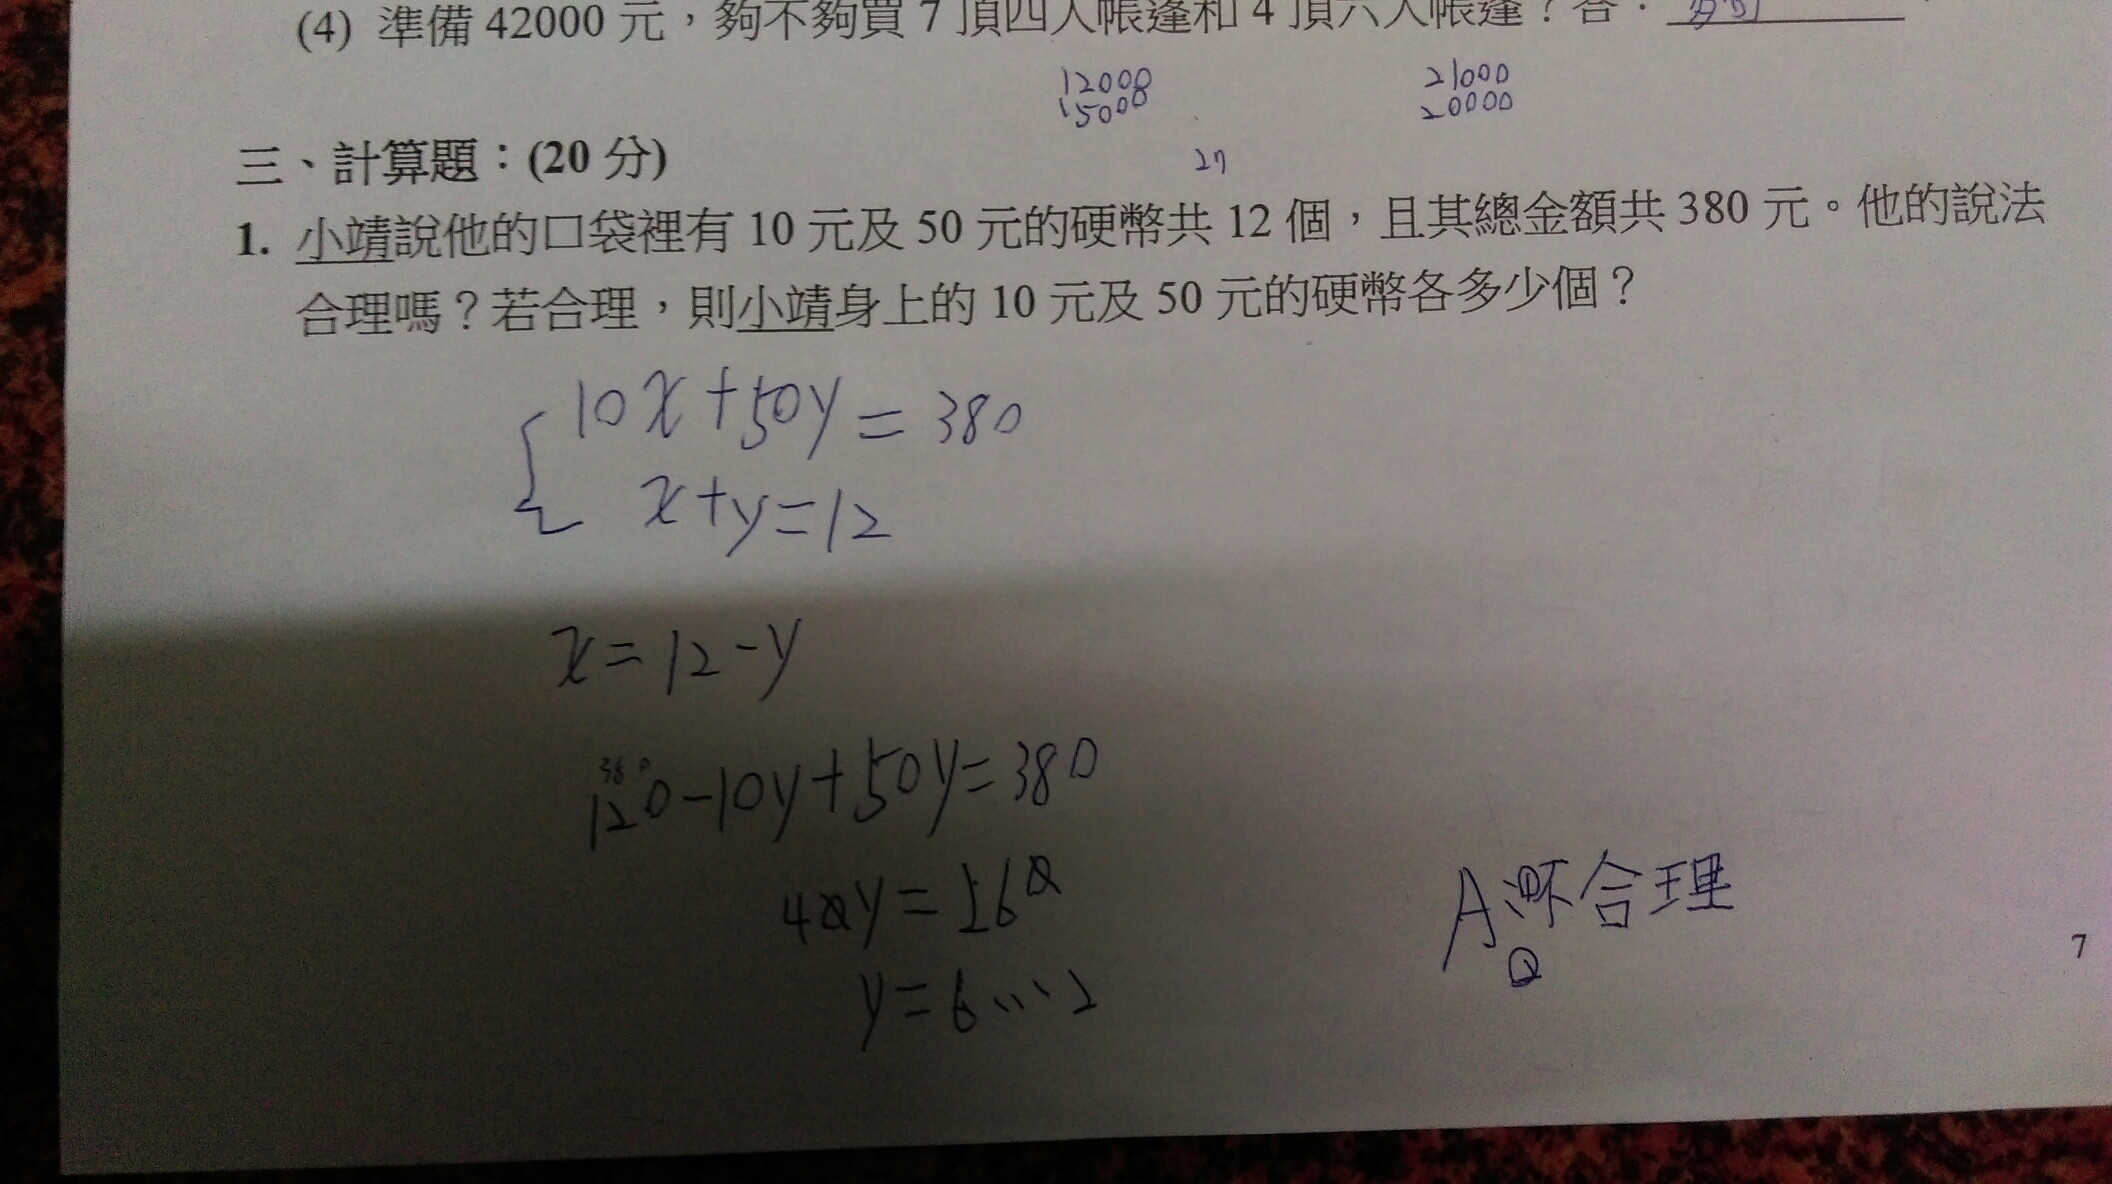 (4) 準備 42000 元，夠不夠買 7 頂四人帳篷和 4 頂六人帳篷？答：夠
12000 21000
15000 20000
27
三、計算題：(20 分)
1. 小靖說他的口袋裡有 10 元及 50 元的硬幣共 12 個，且其總金額共 380 元。他的說法
合理嗎？若合理，則小靖身上的 10 元及 50 元的硬幣各多少個？
10x+50y=380
x+y=12
x=12-y
380
120-10y+50y=380
40y=260
y=6…2
A:不合理
7